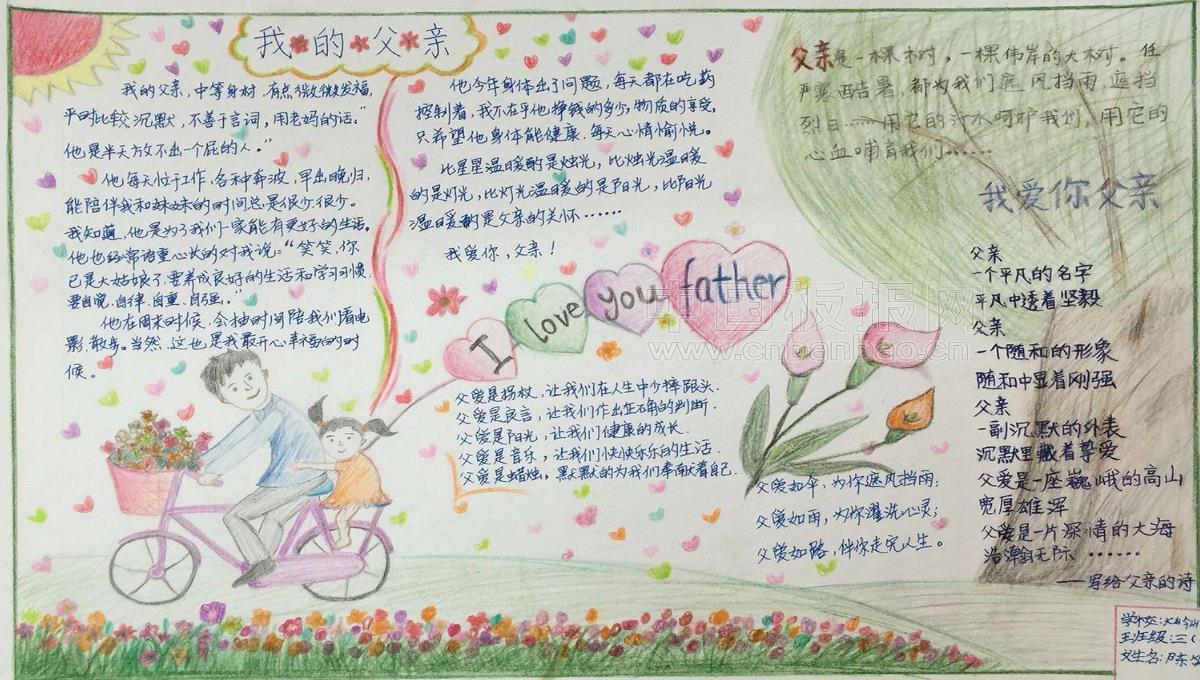 我的父亲
我的父亲，中等身材，有点微微发福，
平时比较沉默，不善于言词，用老妈的话。
他是半天放不出一个屁的人。”
他每天忙于工作，各种奔波，早出晚归，
能陪伴我和妹妹的时间总是很少很少。
我知道，他是为了我们一家能有更好的生活。
他也经常语重心长的对我说：“笑笑，你
已是大姑娘了，要养成良好的生活和学习习惯，
要自觉，自律，自重，自强。”
他在周末时候，会抽时间陪我们看电
影，散步。当然，这也是我最开心幸福的时
候。
他今年身体出了问题，每天都在吃药
控制着，我不在乎他挣钱的多少，物质的享受。
只希望他身体能健康，每天心情愉悦。
比星星温暖的是烛光，比烛光温暖
的是灯光，比灯光温暖的是阳光，比阳光
温暖的是父亲的关怀……
我爱你，父亲！
I love you father
父爱是拐杖，让我们在人生中少摔跟头.
父爱是良言，让我们作出正确的判断.
父爱是阳光，让我们健康的成长.
父爱是音乐，让我们快快乐乐的生活.
父爱是蜡烛，默默的为我们奉献着自己.
父爱如伞，为你遮风挡雨；
父爱如雨，为你濯洗心灵；
父爱如路，伴你走完人生。
父亲是一棵树，一棵伟岸的大树。任
严寒酷暑，都为我们遮风挡雨，遮挡
烈日……用它的汁水呵护我们，用它的
心血哺育我们……
我爱你父亲
父亲
一个平凡的名字
平凡中透着坚毅
父亲
一个随和的形象
随和中显着刚强
父亲
一副沉默的外表
沉默里藏着挚爱
父爱是一座巍峨的高山
宽厚雄浑
父爱是一片深情的大海
浩瀚无际……
——写给父亲的诗
学校：
班级：三(
姓名：陈
中国板报网
www.cnbanbao.cn